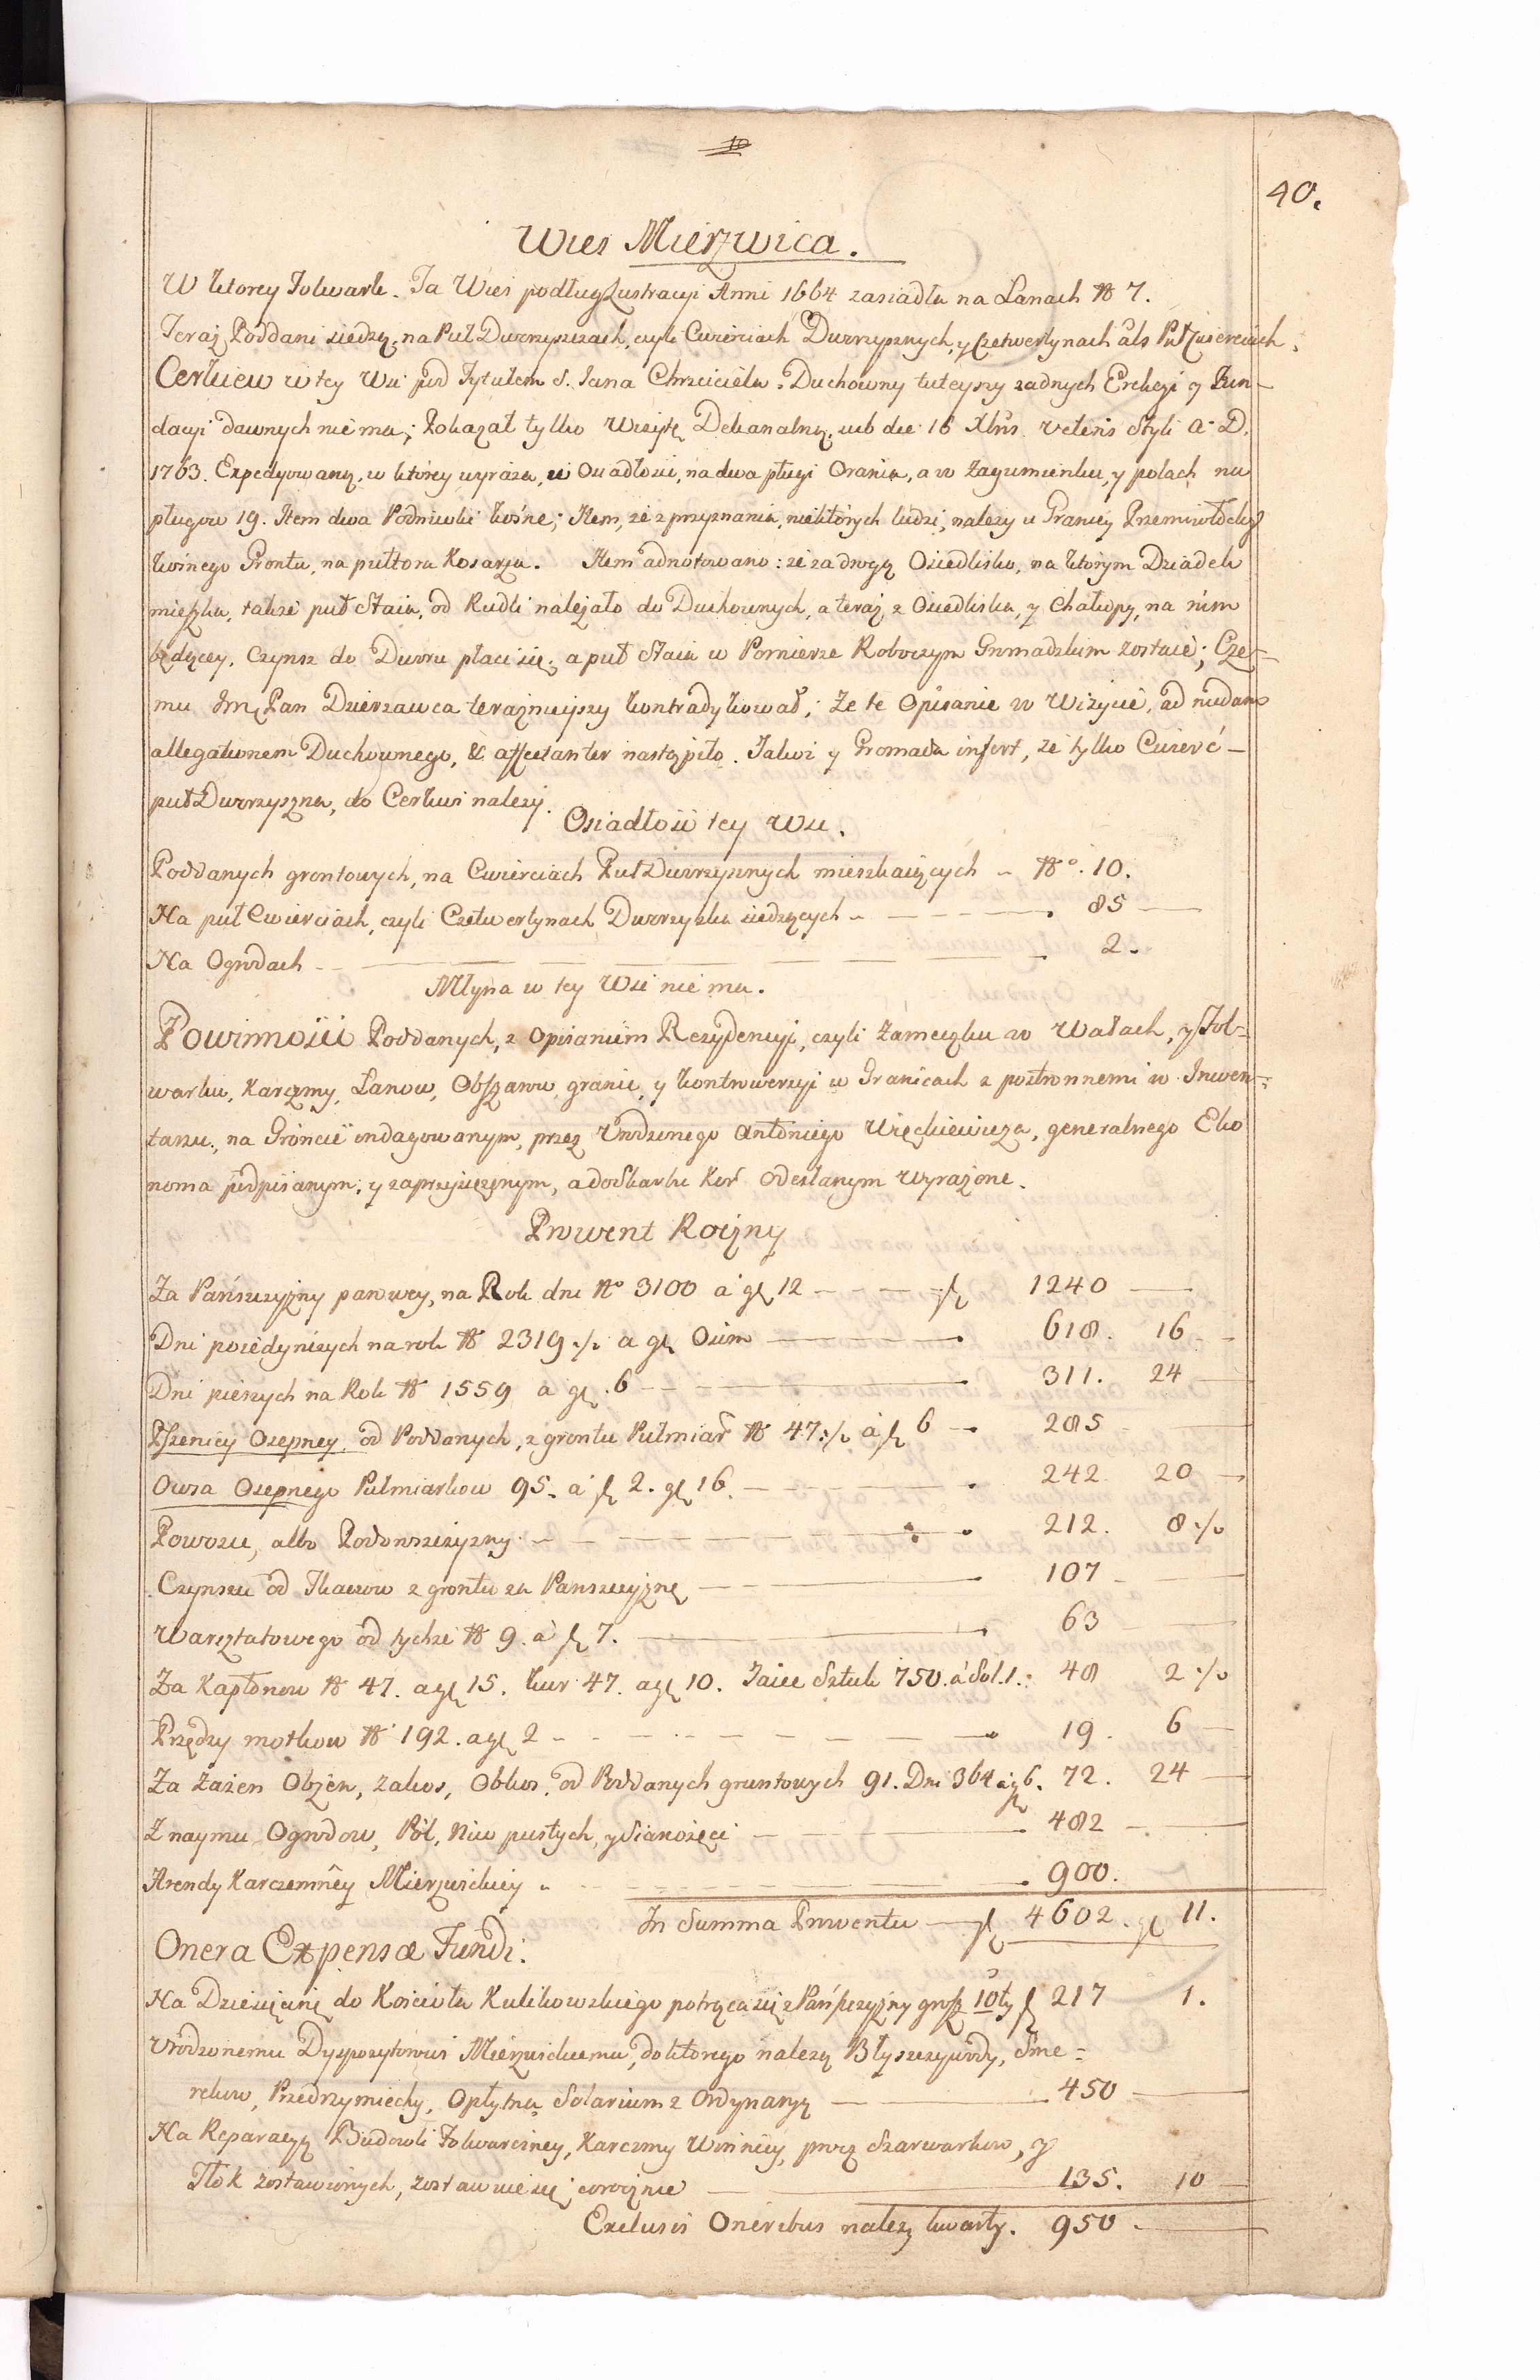 10
40.
Wies Mierzwica.
W ktorey Folwark. Ta Wies podług Lustracyi Anni 1664 zasiadła na Lanach № 7.
Teraz Poddani siedzą, na Puł Dworzyszczach, czyli Cwierciach Dworzysznych, y Czetwertynach als Puł Cwierciach.
Cerkiew w tey Wsi pod Tytułem S. Jana Chrzciciela. Duchowny tuteyszy zadnych Erekcyi y Fun-
dacyi dawnych nie ma; Pokazał tylko Wizytę Dekanalną, sub die 16 Xbris veteris Styli A. D.
1763. Expedyowaną, w ktorey wyraza, w Osiadłosci, na dwa pługi Orania, a w Zagumienku, y polach na
pługow 19. Item dwa Podniwki kośne; Item, ze z przyznania, niektórych ludzi, nalezy u Granicy Przemiwołckiey
kośnego Grontu, na pułtora Kosarza. Item adnotowano: ze za drogą Osiedlisko, na ktorym Dziadek
mieszka, także puł Staia, od Rudki nalezało do Duchownych, a teraz z Osiedliska, y Chałupy, na nim
będącey, Czynsz do Dworu płaci się; a puł Staia w Pomierze Roboczym Gromadzkim zostaie; Cze-
mu Jmę Pan Dzierzawca teraznieyszy kontradykował; Ze te Opisanie w Wizycie, ad nudam
allegationem Duchownego, & affectanter nastąpiło. Jakoż y Gromada infert, ze tylko Cwierć -
puł Dworzyszna, do Cerkwi nalezy.
Osiadłość tey Wsi.
Poddanych grontowych, na Cwierciach Puł Dworzysznych mieszkaiących № 10.
Na puł Cwierciach, czyli Czetwertynach Dworzyska siedzących 85
Na Ogrodach 2.
Młyna w tey Wsi nie ma.
Powinnosci Poddanych, z Opisaniem Rezydencyi, czyli Zameczku w Wałach, y Fol-
warku, Karczmy, Lanow, Obszarow, granic, y kontrowersyi w Granicach z postronnemi w Inwen-
tarzu, na Gróncie indagowanym, przez Urodzonego Antoniego Więckiewicza, generalnego Eko
noma podpisanym, y zaprzysiężonym, a do Skarbu Kor. Odesłanym wyrażone.
Prowent Roczny
Za Pańszczyzny parowey, na Rok dni № 3100 a gł 12 fł 1240
Dni poiedynczych na rok № 2319 ./. a gł Osim 618. 16
Dni pieszych na Rok № 1559 a gł. 6 311. 24
Pszenicy Osepney od Poddanych, z grontu Pułmiar № 47 ./. à fł 6 285
Owsa Osepnego Pułmiarkow 95. a fł 2. gł 16. 242. 20
Powozu, albo Podorożczyzny 212. 8 ./.
Czynszu od Tkaczow z grontu za Panszczyznę 107
Warsztatowego od tychze № 9. à fł 7. 63
Za Kapłonow № 47. a gł 15. kur 47. a gł 10. Jaiec Sztuk 750. à Sol. 1. 48 2 ./.
Przędzy motkow № 192. a gł 2 19. 6
Za Zażen Obżen, Zakos, Obkos, od Poddanych gruntowych 91. Dni 364 a gł 6. 72. 24
Z naymu Ogrodow, Pól, Niw pustych, y Sianożęci 482
Arendy Karczemney Mierzwickiey 900.
In Summa Prowentu fł 4602. gł 11.
Onera Expensæ Fundi.
Na Dziesięcinę do Koscioła Kulikowskiego potrąca się z Pańszczyzny grosz 10ty fł 217 1.
Urodzonemu Dyspozytorowi Mierzwickiemu, do ktorego nalezą Błyszczywody, Sme=
rekow, Przedrzymiechy, Opłytna Solarium z Ordynaryą 450
Na Reparacyą Budowli Folwarczney, Karczmy Winnicy, procz Szarwarkow, y
Tłok zostawionych, zostawuie się corocznie 135. 10
Exclusis Oneribus należy kwarty. 950